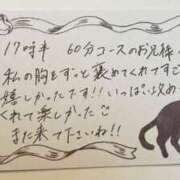 17時半 60分コースのお兄様
私の胸をずっと褒めてくれてすごく
嬉しかったです!!いっぱい攻めて
くれて楽しかったご
また来て下さいね!!